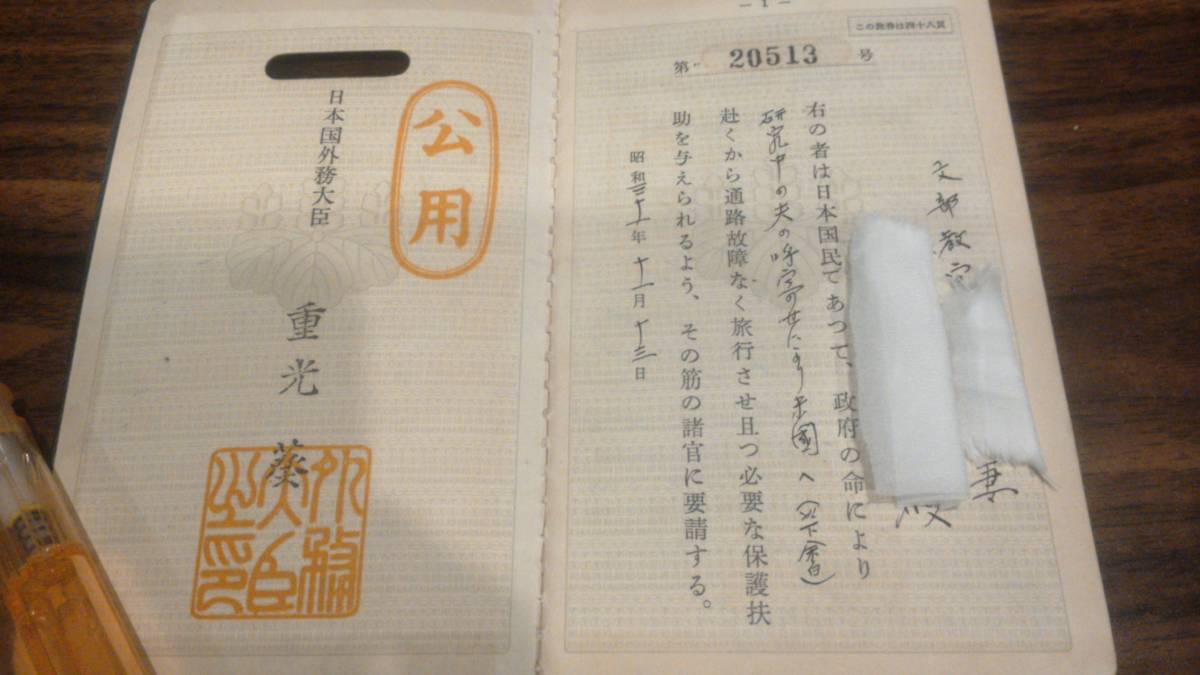 — 1 —
この旅券は四十八頁
第 20513 号
文部教官 妻
右の者は日本国民であつて、政府の命により
研究中の夫の呼寄せにより米國へ(以下余白)
赴くから通路故障なく旅行させ且つ必要な保護扶
助を与えられるよう、その筋の諸官に要請する。
昭和三十一年十一月十三日
公用
日本国外務大臣
重光 葵
外務大臣之印